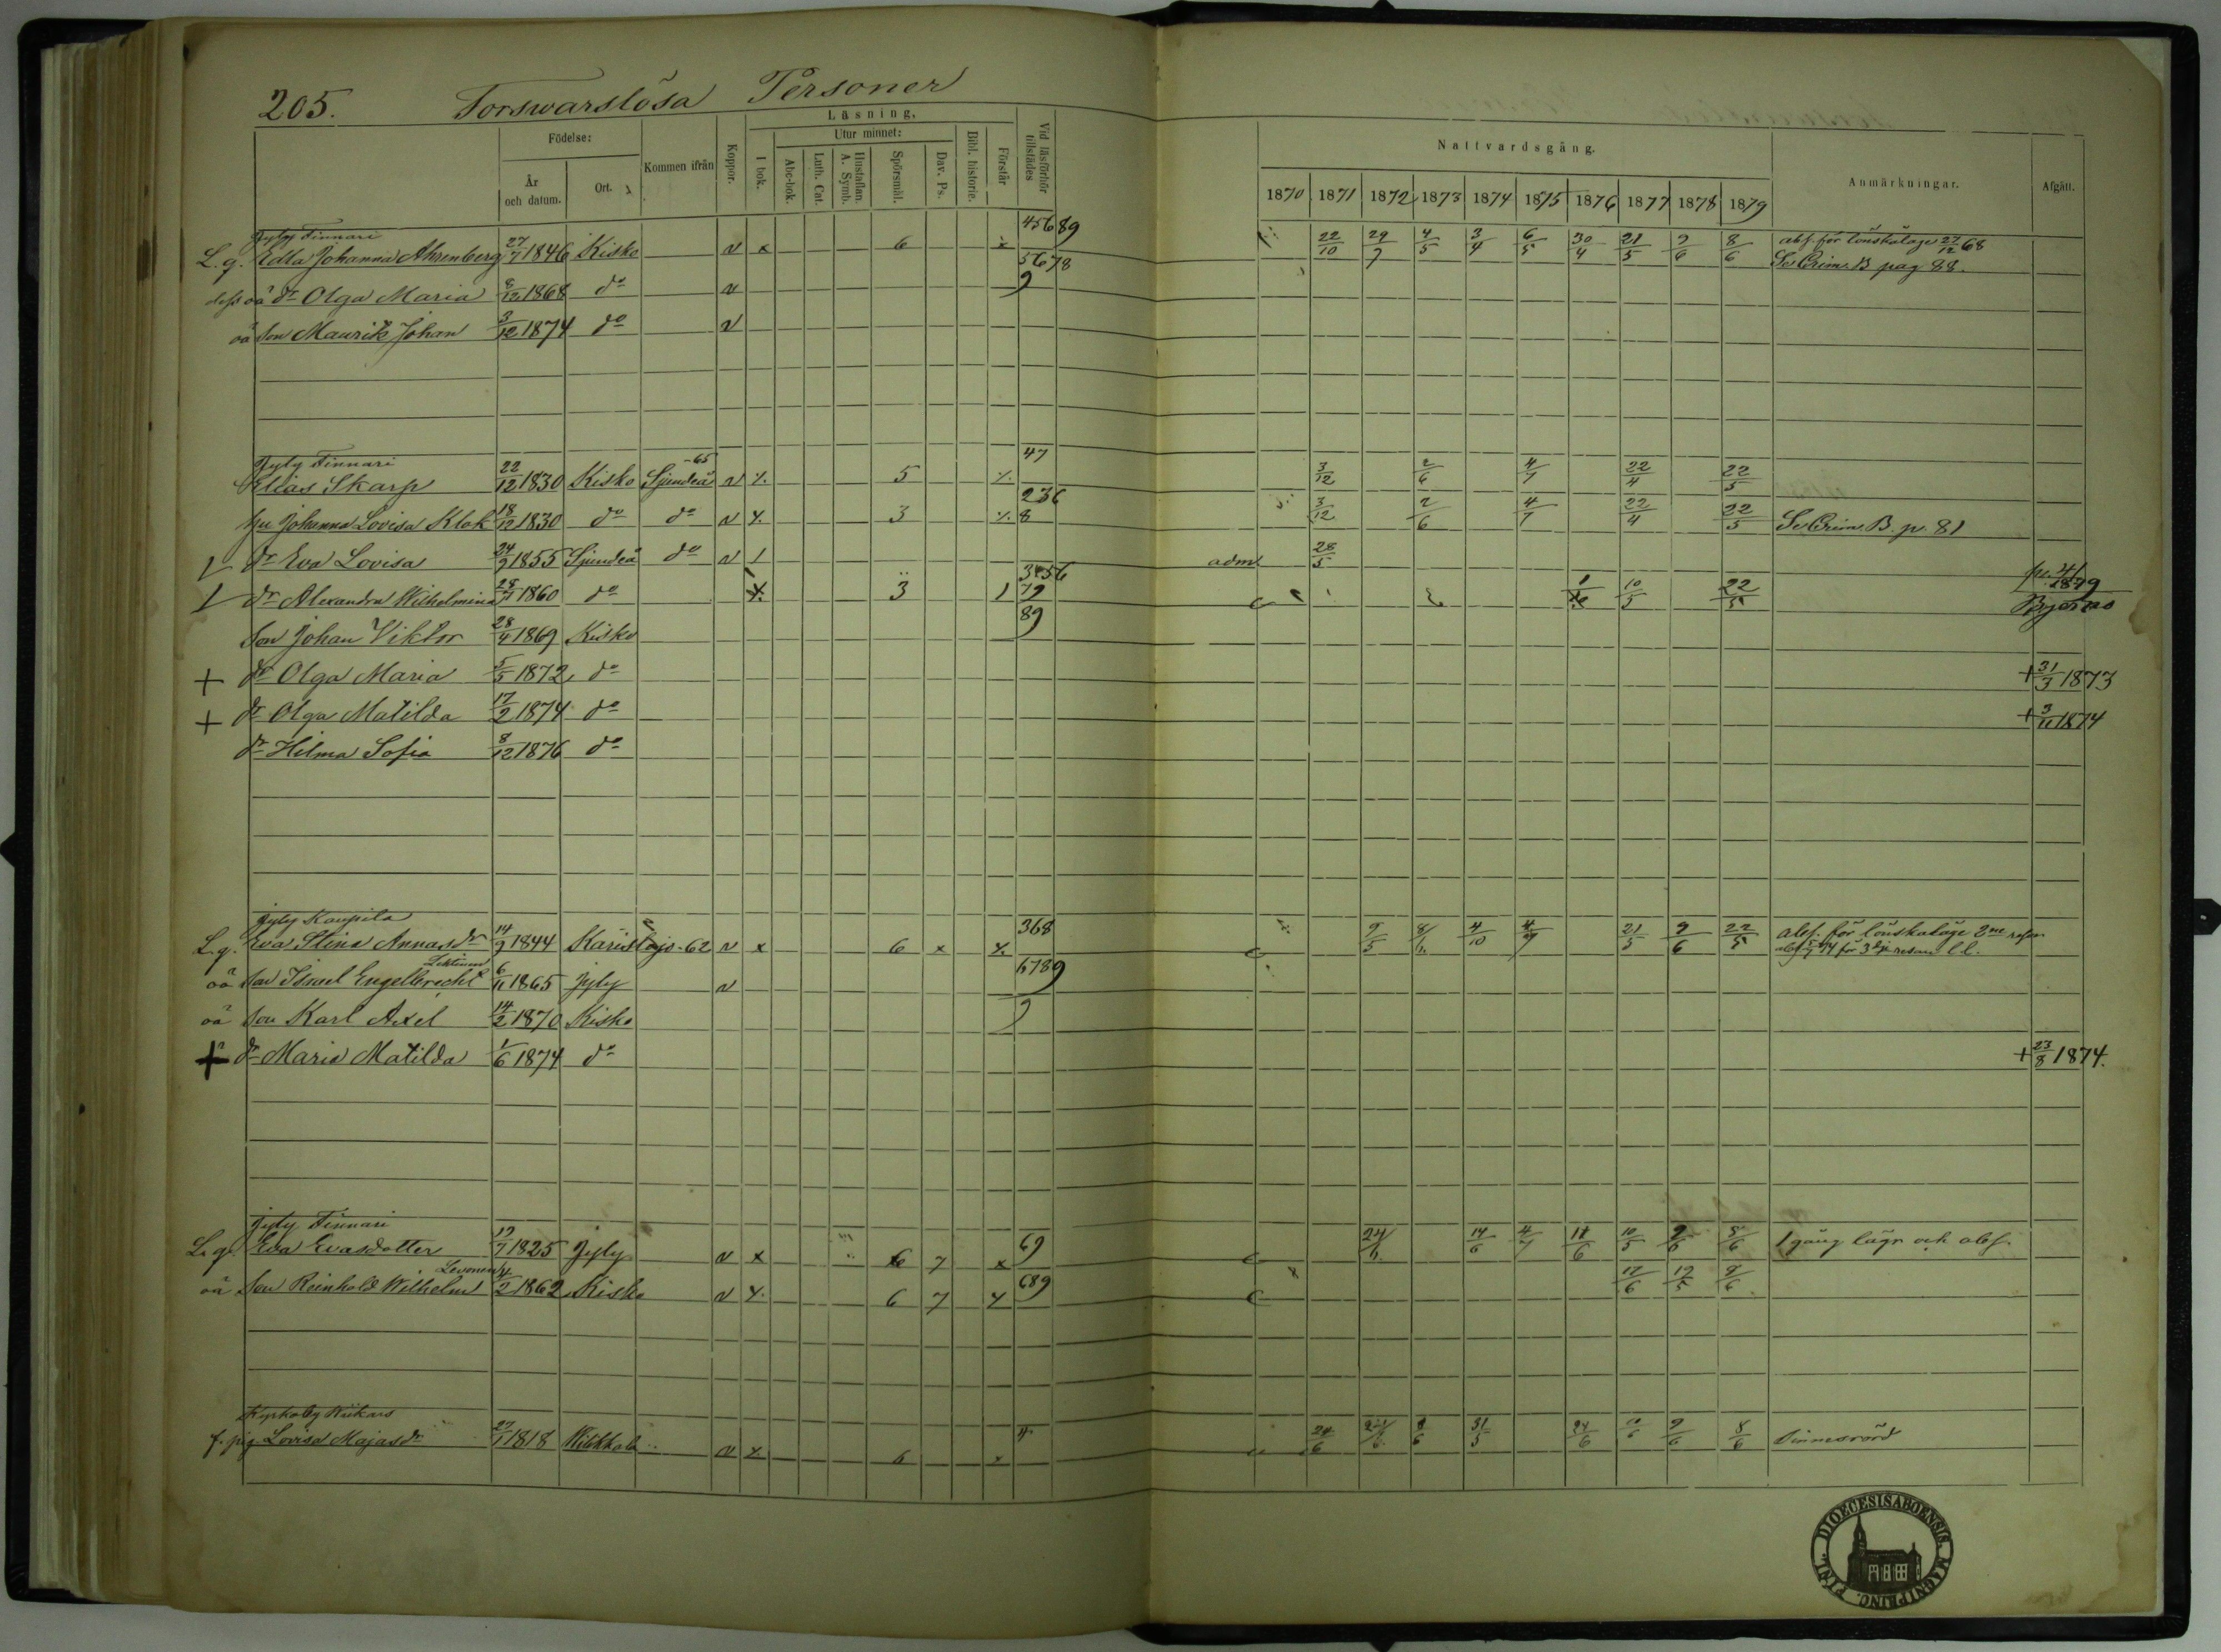 205. Forswarslösa Personer
Födelse:
År och datum.
Ort.
Kommen ifrån
Koppor.
Läsning.
I bok.
Utur minnet:
Abc-bok.
Luth. Cat.
Hustaflan. A. Symb.
Spörsmål.
Dav. Ps.
Bibl. historie.
Förstår
Vid läsförhör tillstädes
Nattvardsgång.
1870 1871 1872 1873 1874 1875 1876 1877 1878 1879
Anmärkningar.
Afgått.
Jyly Finnari 45689
L. q. Edla Johanna Ahrenberg 27/7 1846 Kisko v x 6 x 22/10 29/7 4/5 3/4 6/5 30/4 21/5 9/6 8/6 abs. för lönskaläge 27/12 68
5678 Se Crim. B pag 88.
dess oä dr Olga Maria 8/12 1868 do v 9
oä son Maurik Johan 3/12 1874 do v
Jyly Finnari -65 47
Elias Skarp 22/12 1830 Kisko Sjundeå v 5 3/12 2/6 4/7 22/4 22/5
236
hu Johanna Lovisa Klok 18/12 1830 do do v 3 8 3/12 2/6 4/7 22/4 22/5 Se Crim. B. p. 81
dr Eva Lovisa 24/9 1855 Sjundeå do v 1 adm 28/5
3456
dr Alexandra Wilhelmina 28/7 1860 do 3 1 79 10/5 22/5 1879
Bjerno
Son Johan Viktor 28/4 1869 Kisko 89
+ dr Olga Maria 5/5 1872 do + 31/3 1873
+ dr Olga Matilda 17/2 1874 do + 3/11 1874
dr Hilma Sofia 8/12 1876 do
Jyly Kaupila 368
L. q. Eva Stina Annasdr 14/9 1844 Karislojo -62 v x 6 x 9/5 8/6 4/10 4/7 21/5 9/6 22/5 abs. för lönskaläge 2ne resor
för 3dje resan l.l.
6789
oä son Israel Engelbrecht 6/11 1865 Jyly v
oä son Karl Axel 14/2 1870 Kisko 9
+ dr Maria Matilda 1/6 1874 do + 23/8 1874.
Jyly Finnari
L. q. Eva Evasdotter 17/7 1825 Jyly v x 6 7 x 69 24/6 14/6 4/7 11/6 10/5 9/6 8/6 1 gång lägr och abs.
Levonen
oä Son Reinhold Wilhelm 4/2 1862 Kisko v 6 7 689 17/6 19/5 8/6
Kyrkoby Wikars
f. pig. Lovisa Majasdr 27/1 1818 v 6 4 24/6 24/6 8/6 31/5 24/6 9/6 8/6 Sinnesrörd
FINL. DIOECESIS ABOENSIS. MAGNI PRINC.